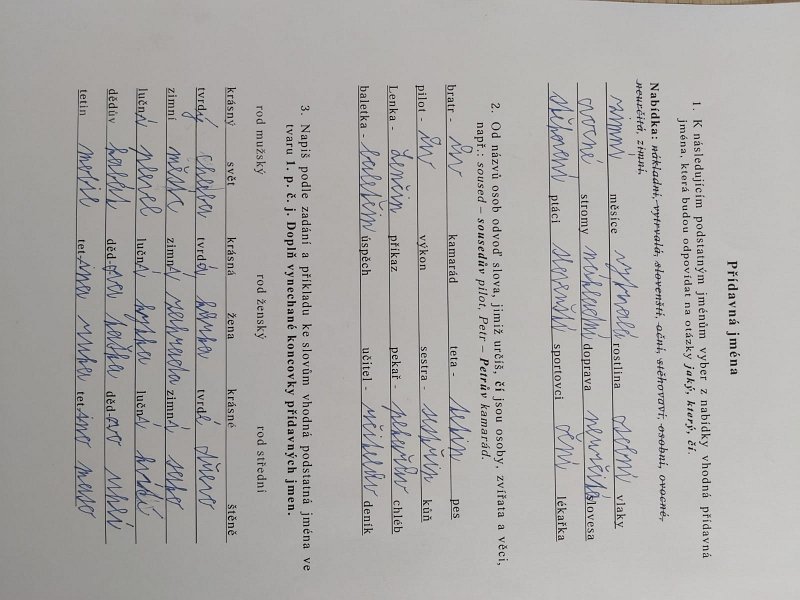 Přídavná jména
1. K následujícím podstatným jménům vyber z nabídky vhodná přídavná
jména, která budou odpovídat na otázky jaký, který, čí.
Nabídka: nákladní, vytrvalá, slovenští, oční, stěhovaví, osobní, ovocné,
neurčitá, zimní,
zimní měsíce vytrvalá rostlina osobní vlaky
ovocné stromy nákladní doprava neurčitá slovesa
stěhovaví ptáci slovenští sportovci oční lékařka
2. Od názvů osob odvoď slova, jimiž určíš, čí jsou osoby, zvířata a věci,
např.: soused – sousedův pilot, Petr – Petrův kamarád.
bratr - ův kamarád teta - tetin pes
pilot - ův výkon sestra - sestřin kůň
Lenka - Lenčin příkaz pekař - pekařův chléb
baletka - baletčin úspěch učitel - učitelův deník
3. Napiš podle zadání a příkladu ke slovům vhodná podstatná jména ve
tvaru 1. p. č. j. Doplň vynechané koncovky přídavných jmen.
rod mužský rod ženský rod střední
krásný svět krásná žena krásné štěně
tvrdý chleba tvrdá tvrdé dřevo
zimní měsíc zimní zahrada zimní
luční plevel luční kytka luční kvítí
dědův kabát dědova taška dědovo
tetin tetina ruka tetino maso